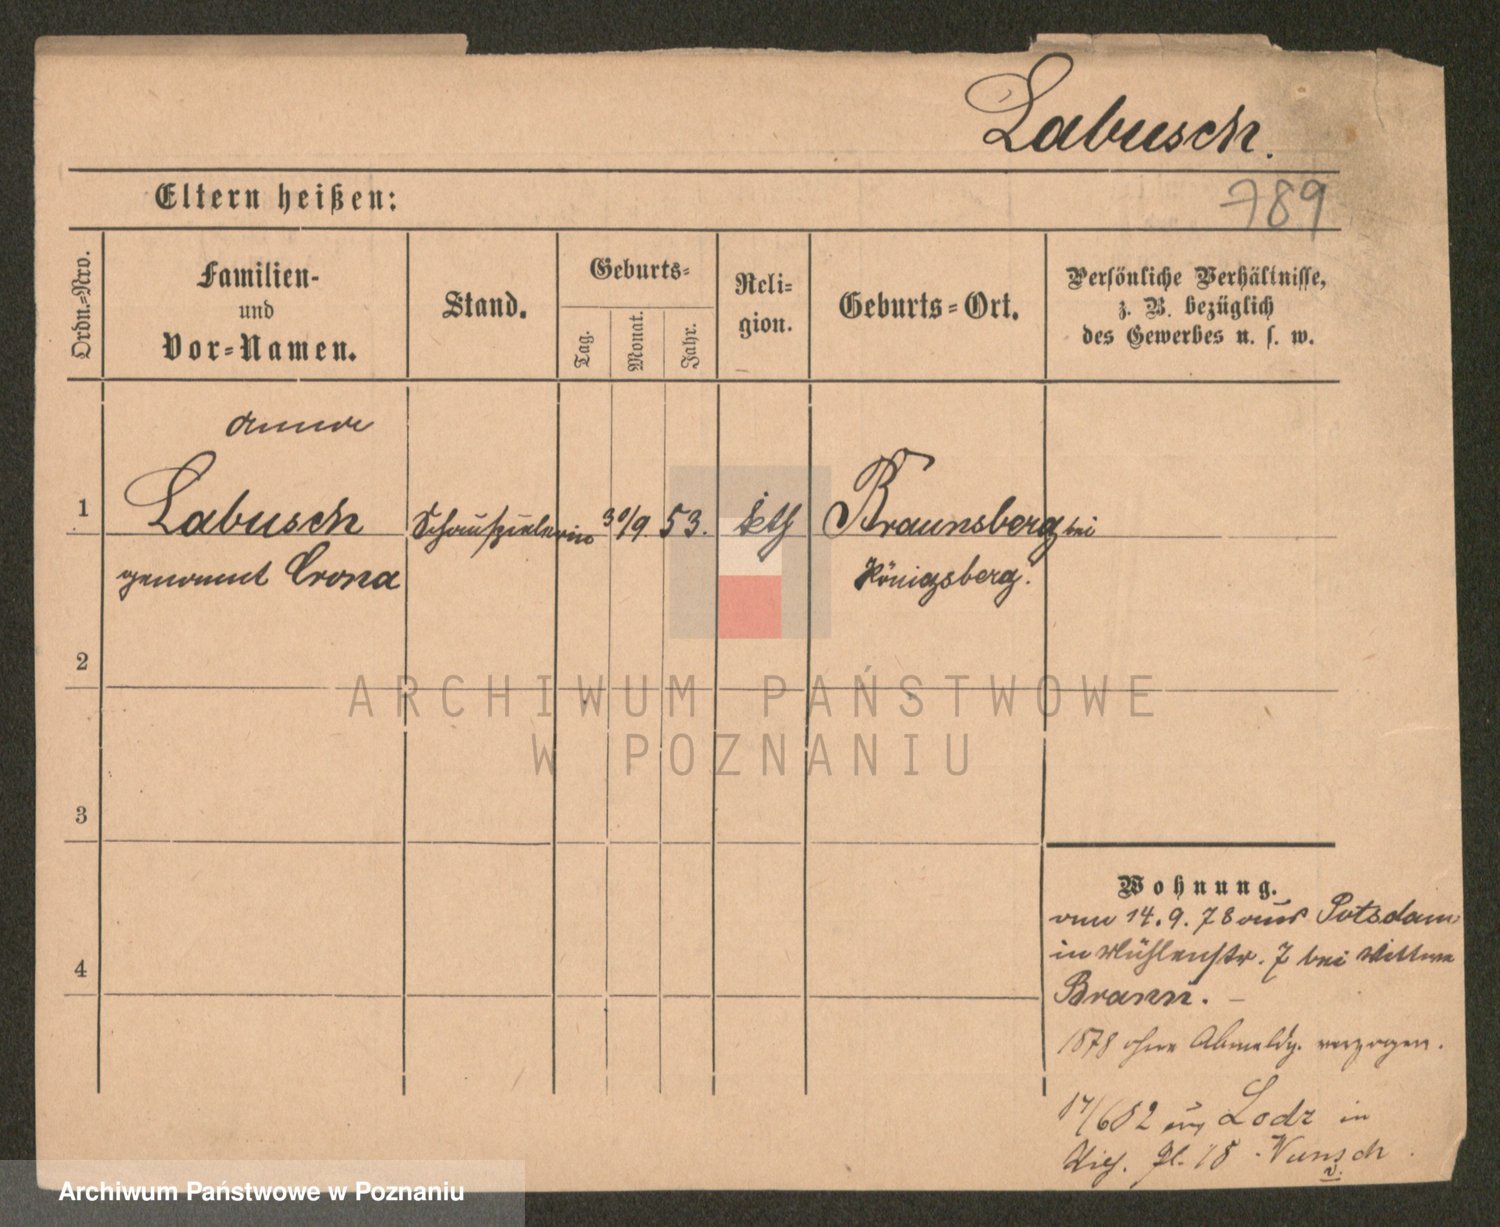 Labusch.
Eltern heißen:
789
Ordn.-Nro.
Familien-
und
Vor-Namen.
Stand.
Geburts-
Tag.
Monat.
Jahr.
Reli-
gion.
Geburts-Ort.
Persönliche Verhältnisse,
z. B. bezüglich
des Gewerbes u. s. w.
1
Labusch
genannt Crona
Schauspielerin
30/9. 53.
kth
Braunsberg bei
Königsberg.
2
3
4
ARCHIWUM PAŃSTWOWE
W POZNANIU
Wohnung.
14. 9. 78 aus Potsdam
in Mühlenstr. 7 bei Wittwe
Brann. –
1878 ohne Abmeldg. verzogen.
17/6 82 aus Lodz in
18 Wunsch
Archiwum Państwowe w Poznaniu